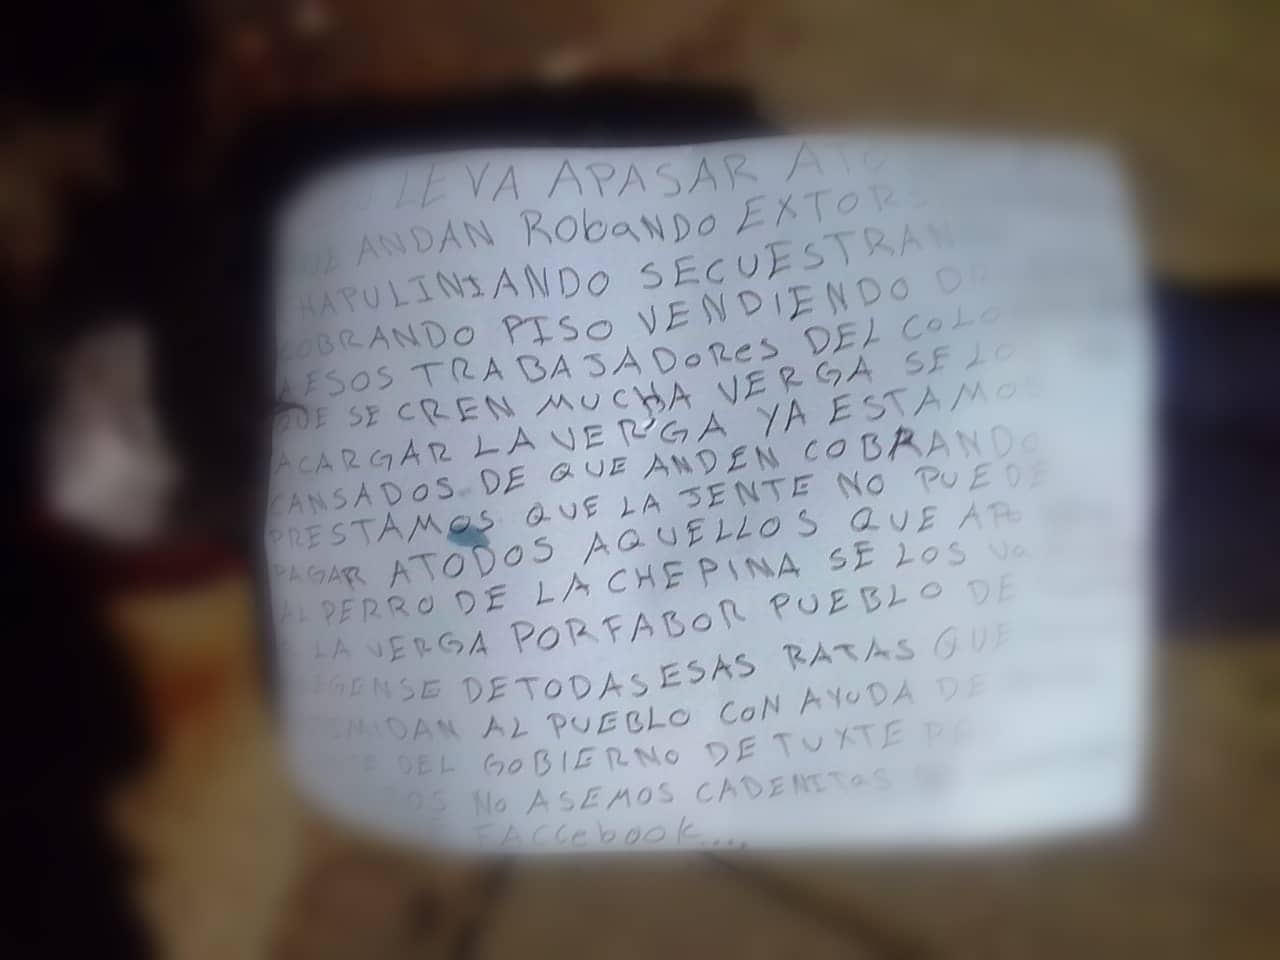 LE VA APASAR
ANDAN RObANDO EXTORS
HAPULINIANDO SECUESTRAN
COBRANDO PISO VENDIENDO
A ESOS TRABAJADOReS DEL COLO
QUE SE CREN MUCHA VERGA SE LO
ACARGAR LA VERGA YA ESTAMOS
CANSADOS DE QUE ANDEN COBRANDO
PRESTAMOS QUE LA JENTE NO PUEDE
PAGAR ATODOS AQUELLOS QUE
AL PERRO DE LA CHEPINA SE LOS Va
LA VERGA PORFABOR PUEBLO DE
DETODAS ESAS RATAS QUE
AL PUEBLO CON AYUDA DE
DEL GOBIERNO DE TUXTE
No ASEMOS CADENITaS
FACCebook....